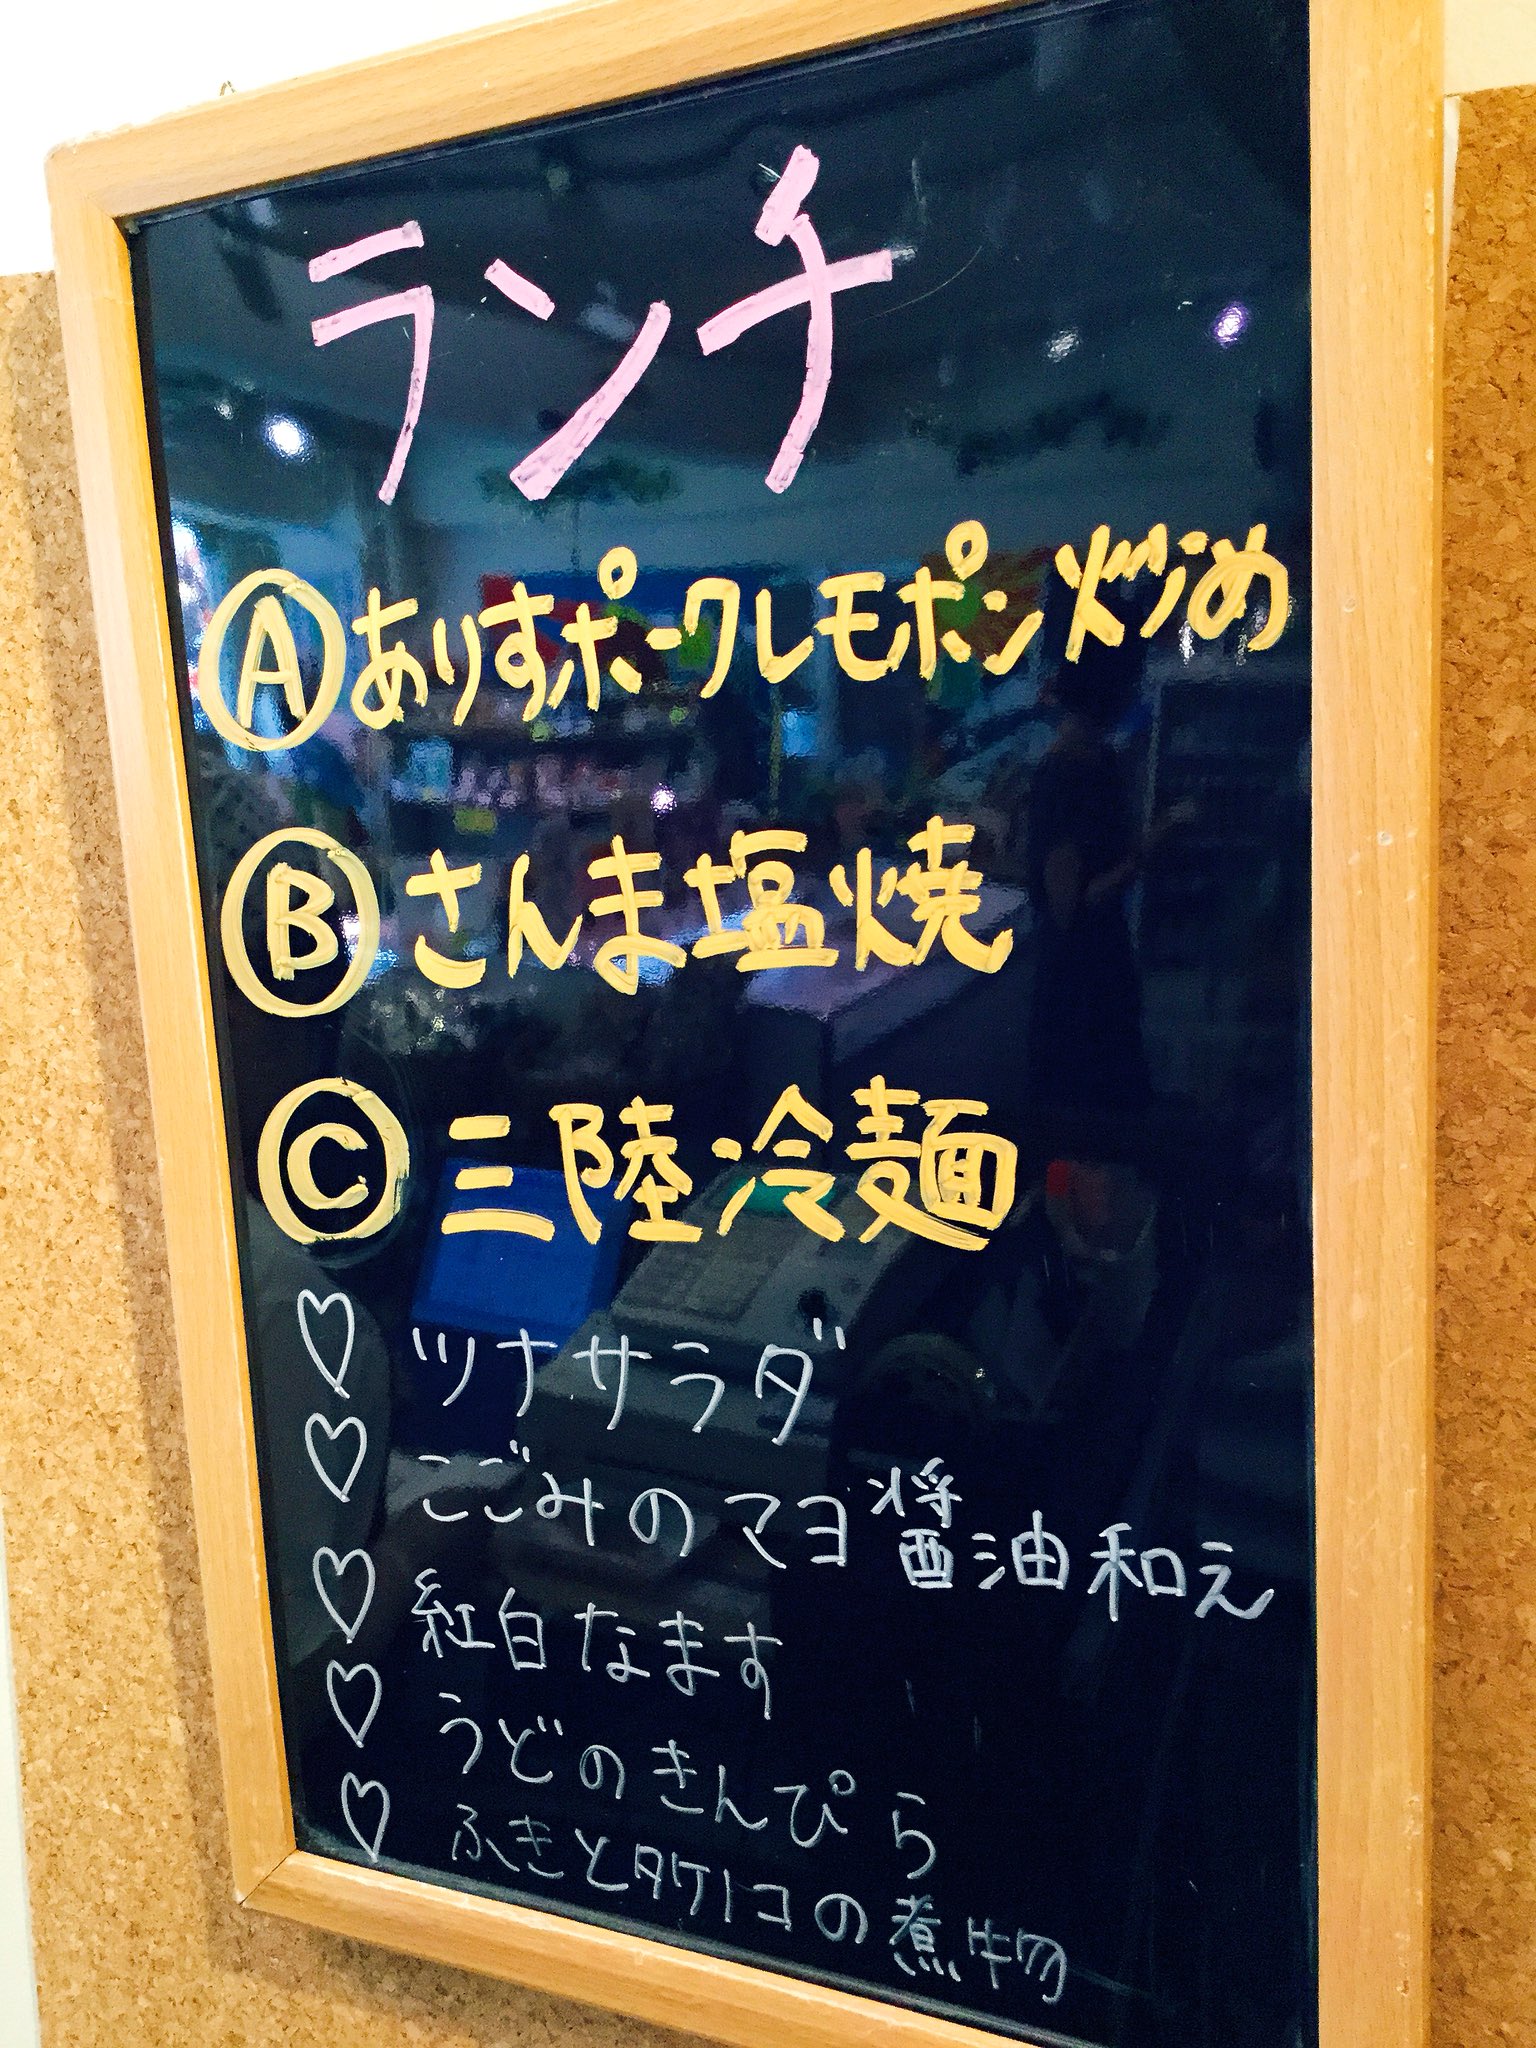 ランチ
Ⓐありすポークレモポン炒め
Ⓑさんま塩焼
Ⓒ三陸冷麺
♡ツナサラダ
♡こごみのマヨ醤油和え
♡紅白なます
♡うどのきんぴら
♡ふきとタケノコの煮物